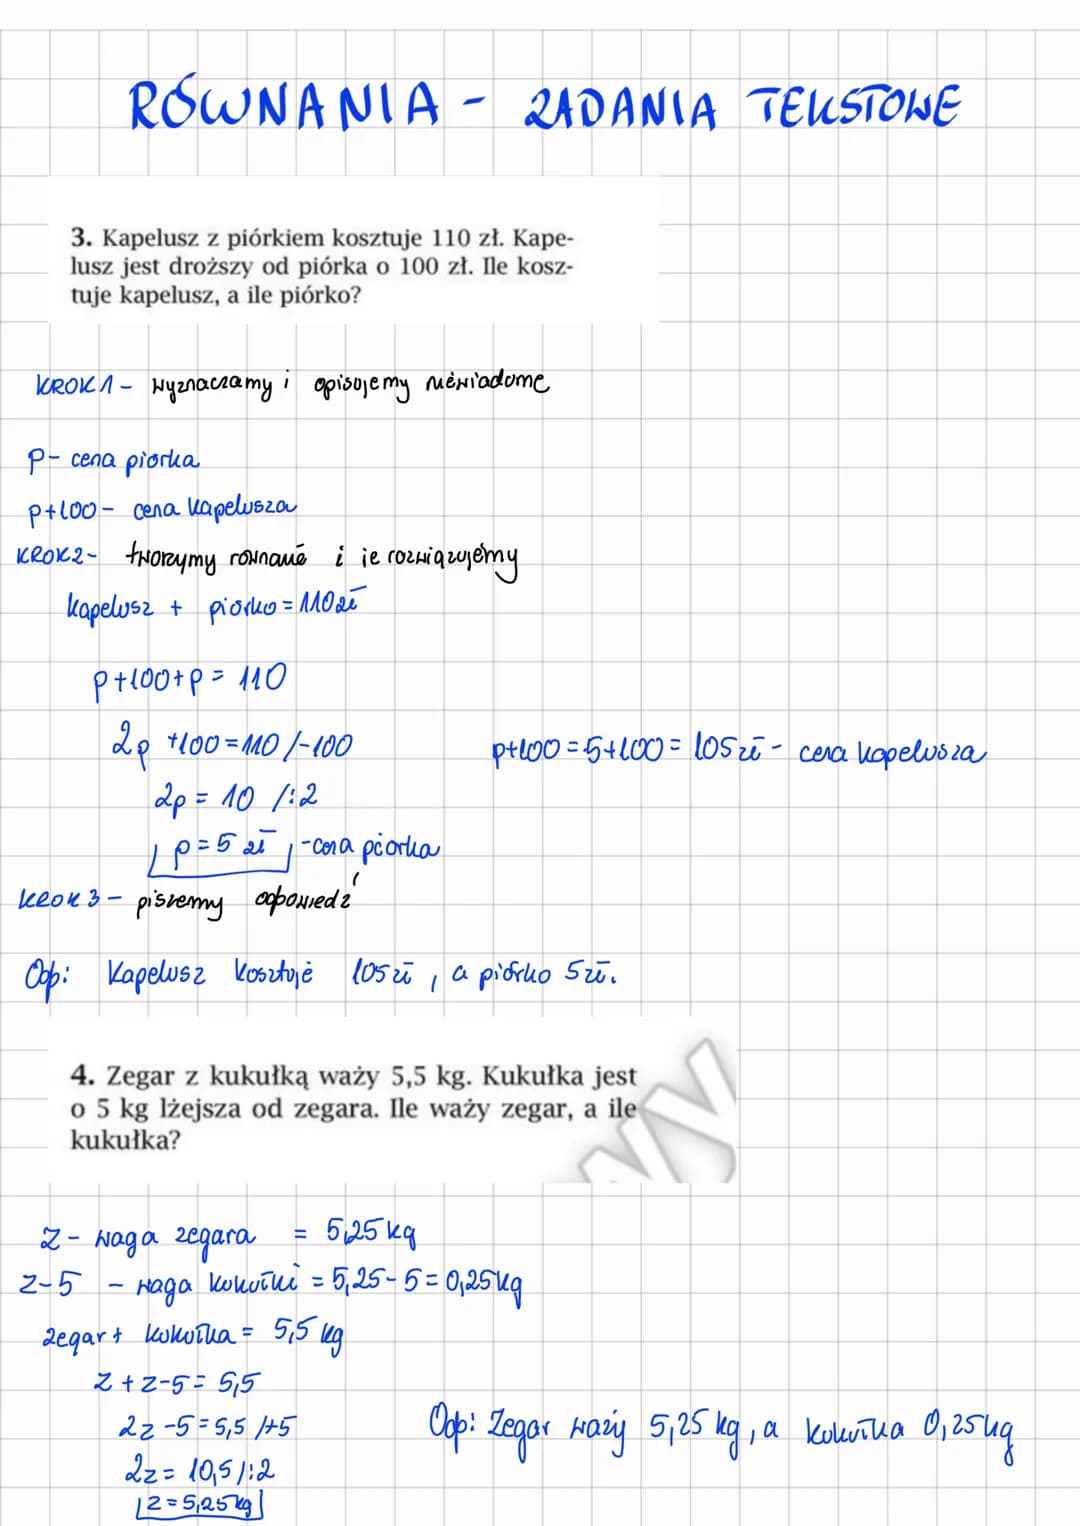 RÓWNANIA - ZADANIA TEKSTOWE
3. Kapelusz z piórkiem kosztuje 110 zł. Kape-
lusz jest droższy od piórka o 100 zł. Ile kosz-
tuje kapelusz, a ile piórko?
KROK 1 - wyznaczamy i opisujemy niewiadome
p - cena piórka
p+100 - cena kapelusza
KROK 2 - tworzymy równanie i je rozwiązujemy
kapelusz + piórko = 110 zł
p+100+p = 110
2p +100 = 110 /-100
p+100 = 5+100 = 105 zł - cena kapelusza
2p = 10 /:2
p = 5 zł - cena piórka
KROK 3 - piszemy odpowiedź
Odp: Kapelusz kosztuje 105 zł, a piórko 5 zł.
4. Zegar z kukułką waży 5,5 kg. Kukułka jest
o 5 kg lżejsza od zegara. Ile waży zegar, a ile
kukułka?
z - waga zegara = 5,25 kg
z-5 - waga kukułki = 5,25-5 = 0,25 kg
zegar + kukułka = 5,5 kg
z+z-5 = 5,5
2z -5 = 5,5 /+5
Odp: Zegar waży 5,25 kg, a kukułka 0,25 kg
2z = 10,5 /:2
z = 5,25 kg